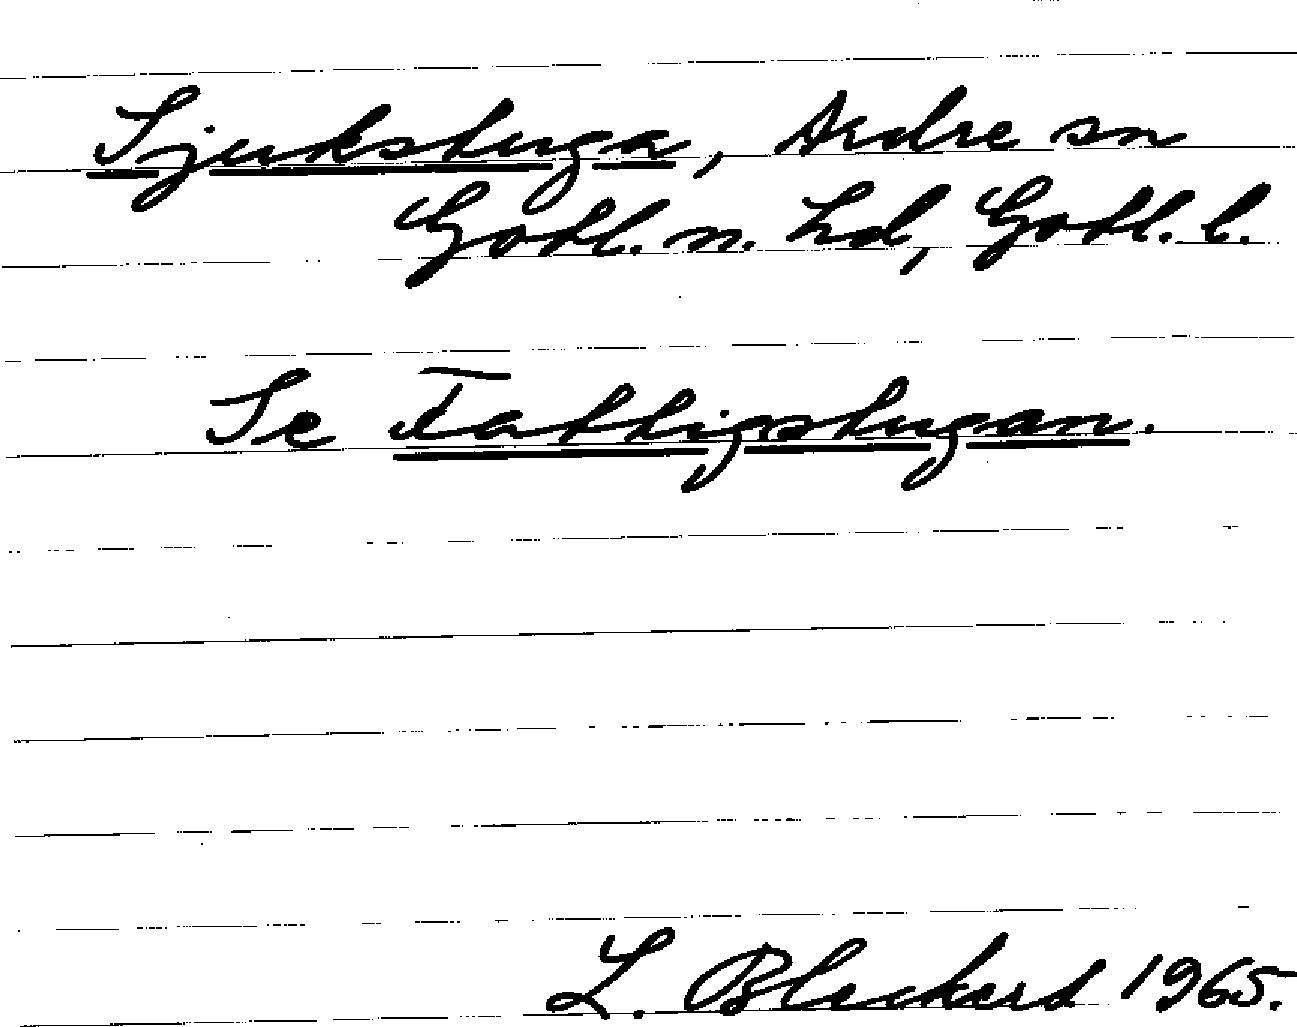 Sjukstuga, Ardre sn
Gotl. n. hd, Gotl. l.
Se Fattigstugan.
L. Bleckerd 1965.